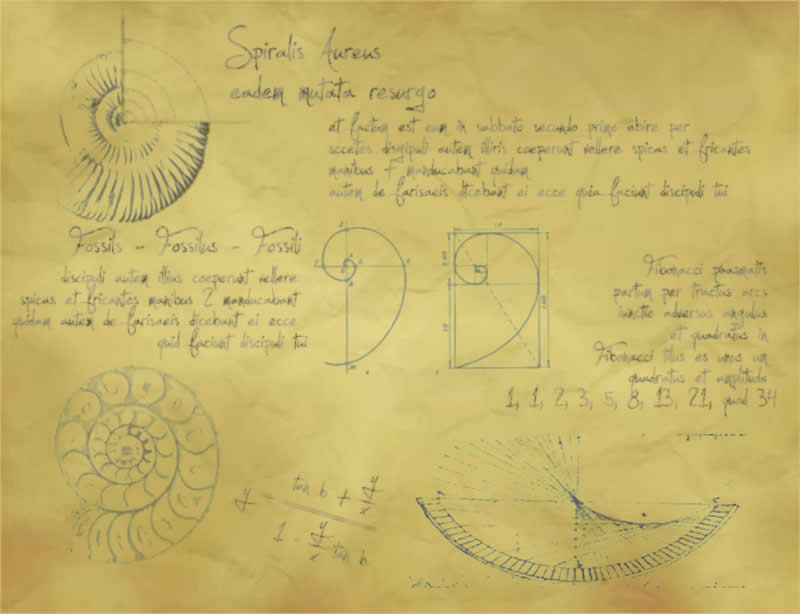 Spiralis Aureus
eadem mutata resurgo
et factum est eum in sabbato secundo primo abire per
sccetes disgipuli autem illiris coeperunt vellere spicas et fricantes
manibus + manducabant quidam
autem de farisaeis dicebant ei ecce quia faciunt discipuli tui
Fossils - Fossilus - Fossili
discipuli autem illius coeperunt vellere
spicas et fricantes manibus 2 manducabant
quidam autem de farisaeis dicebant ei ecce
quid faciunt discipuli tui
Fibonacci
partum per tractus arcs
iunctio adversus angulus
et quadratus in
Fibonacci titus es unus un
quadratus et amplitudo
1, 1, 2, 3, 5, 8, 13, 21, quad 34
y tan b + y/x
1 - y/x tan b